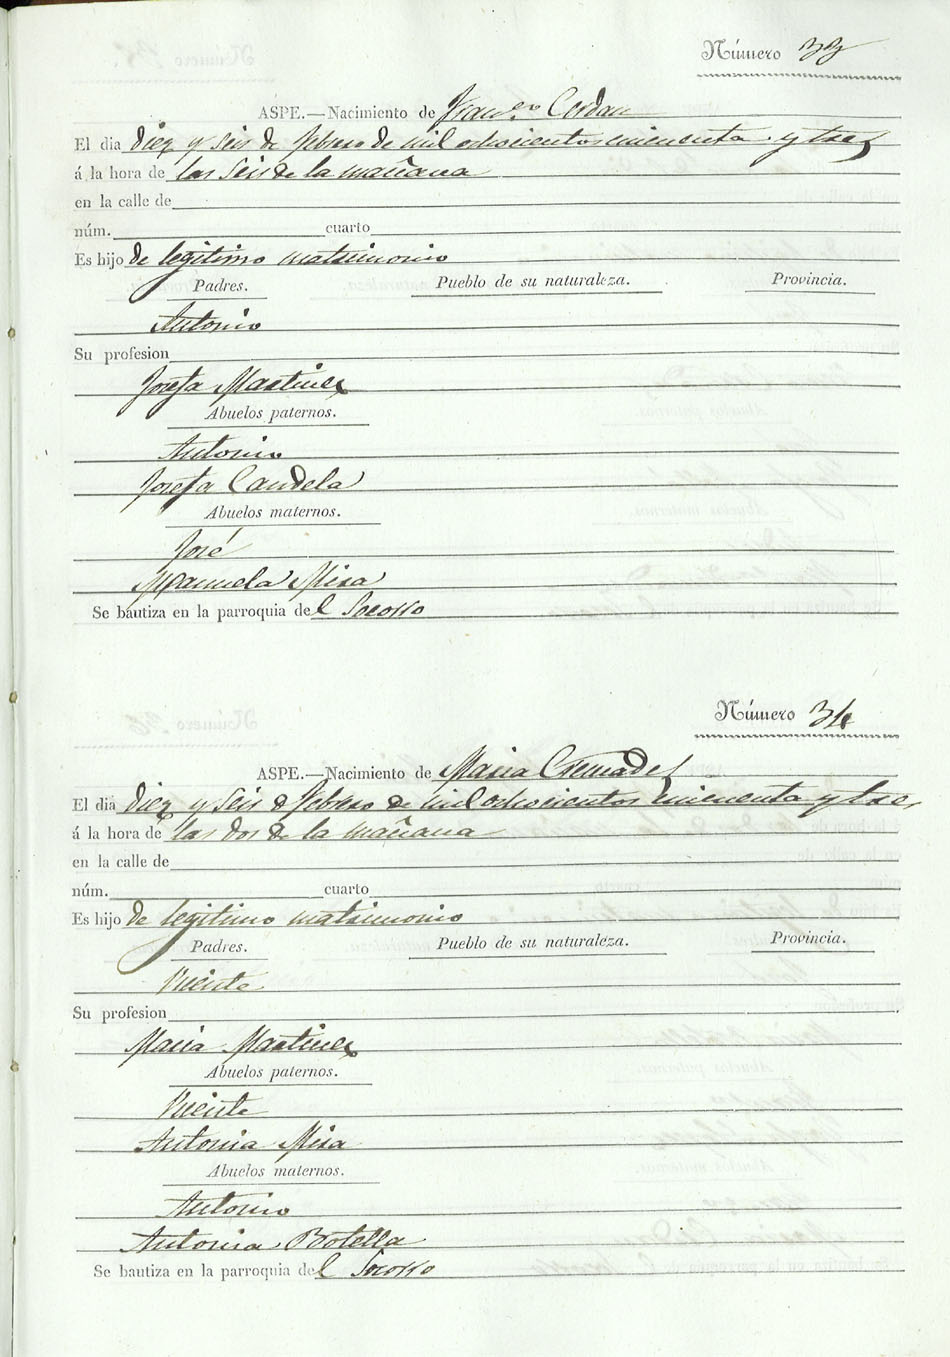 Número 33
ASPE.—Nacimiento de Franco Cerdan
El dia diez y seis de febrero de mil ochocientos cincuenta y tres
á la hora de las seis de la mañana
en la calle de
núm. cuarto
Es hijo de legitimo matrimonio
Padres. Pueblo de su naturaleza. Provincia.
Antonio
Su profesion
Josefa Martinez
Abuelos paternos.
Antonio
Josefa Candela
Abuelos maternos.
José
Manuela Mira
Se bautiza en la parroquia del Socorro
Número 34
ASPE.—Nacimiento de Maria Cremades
El dia diez y seis de febrero de mil ochocientos cincuenta y tres
á la hora de las dos de la mañana
en la calle de
núm. cuarto
Es hijo de legitimo matrimonio
Padres. Pueblo de su naturaleza. Provincia.
Vicente
Su profesion
Maria Martinez
Abuelos paternos.
Vicente
Antonia Mira
Abuelos maternos.
Antonio
Antonia Botella
Se bautiza en la parroquia del Socorro